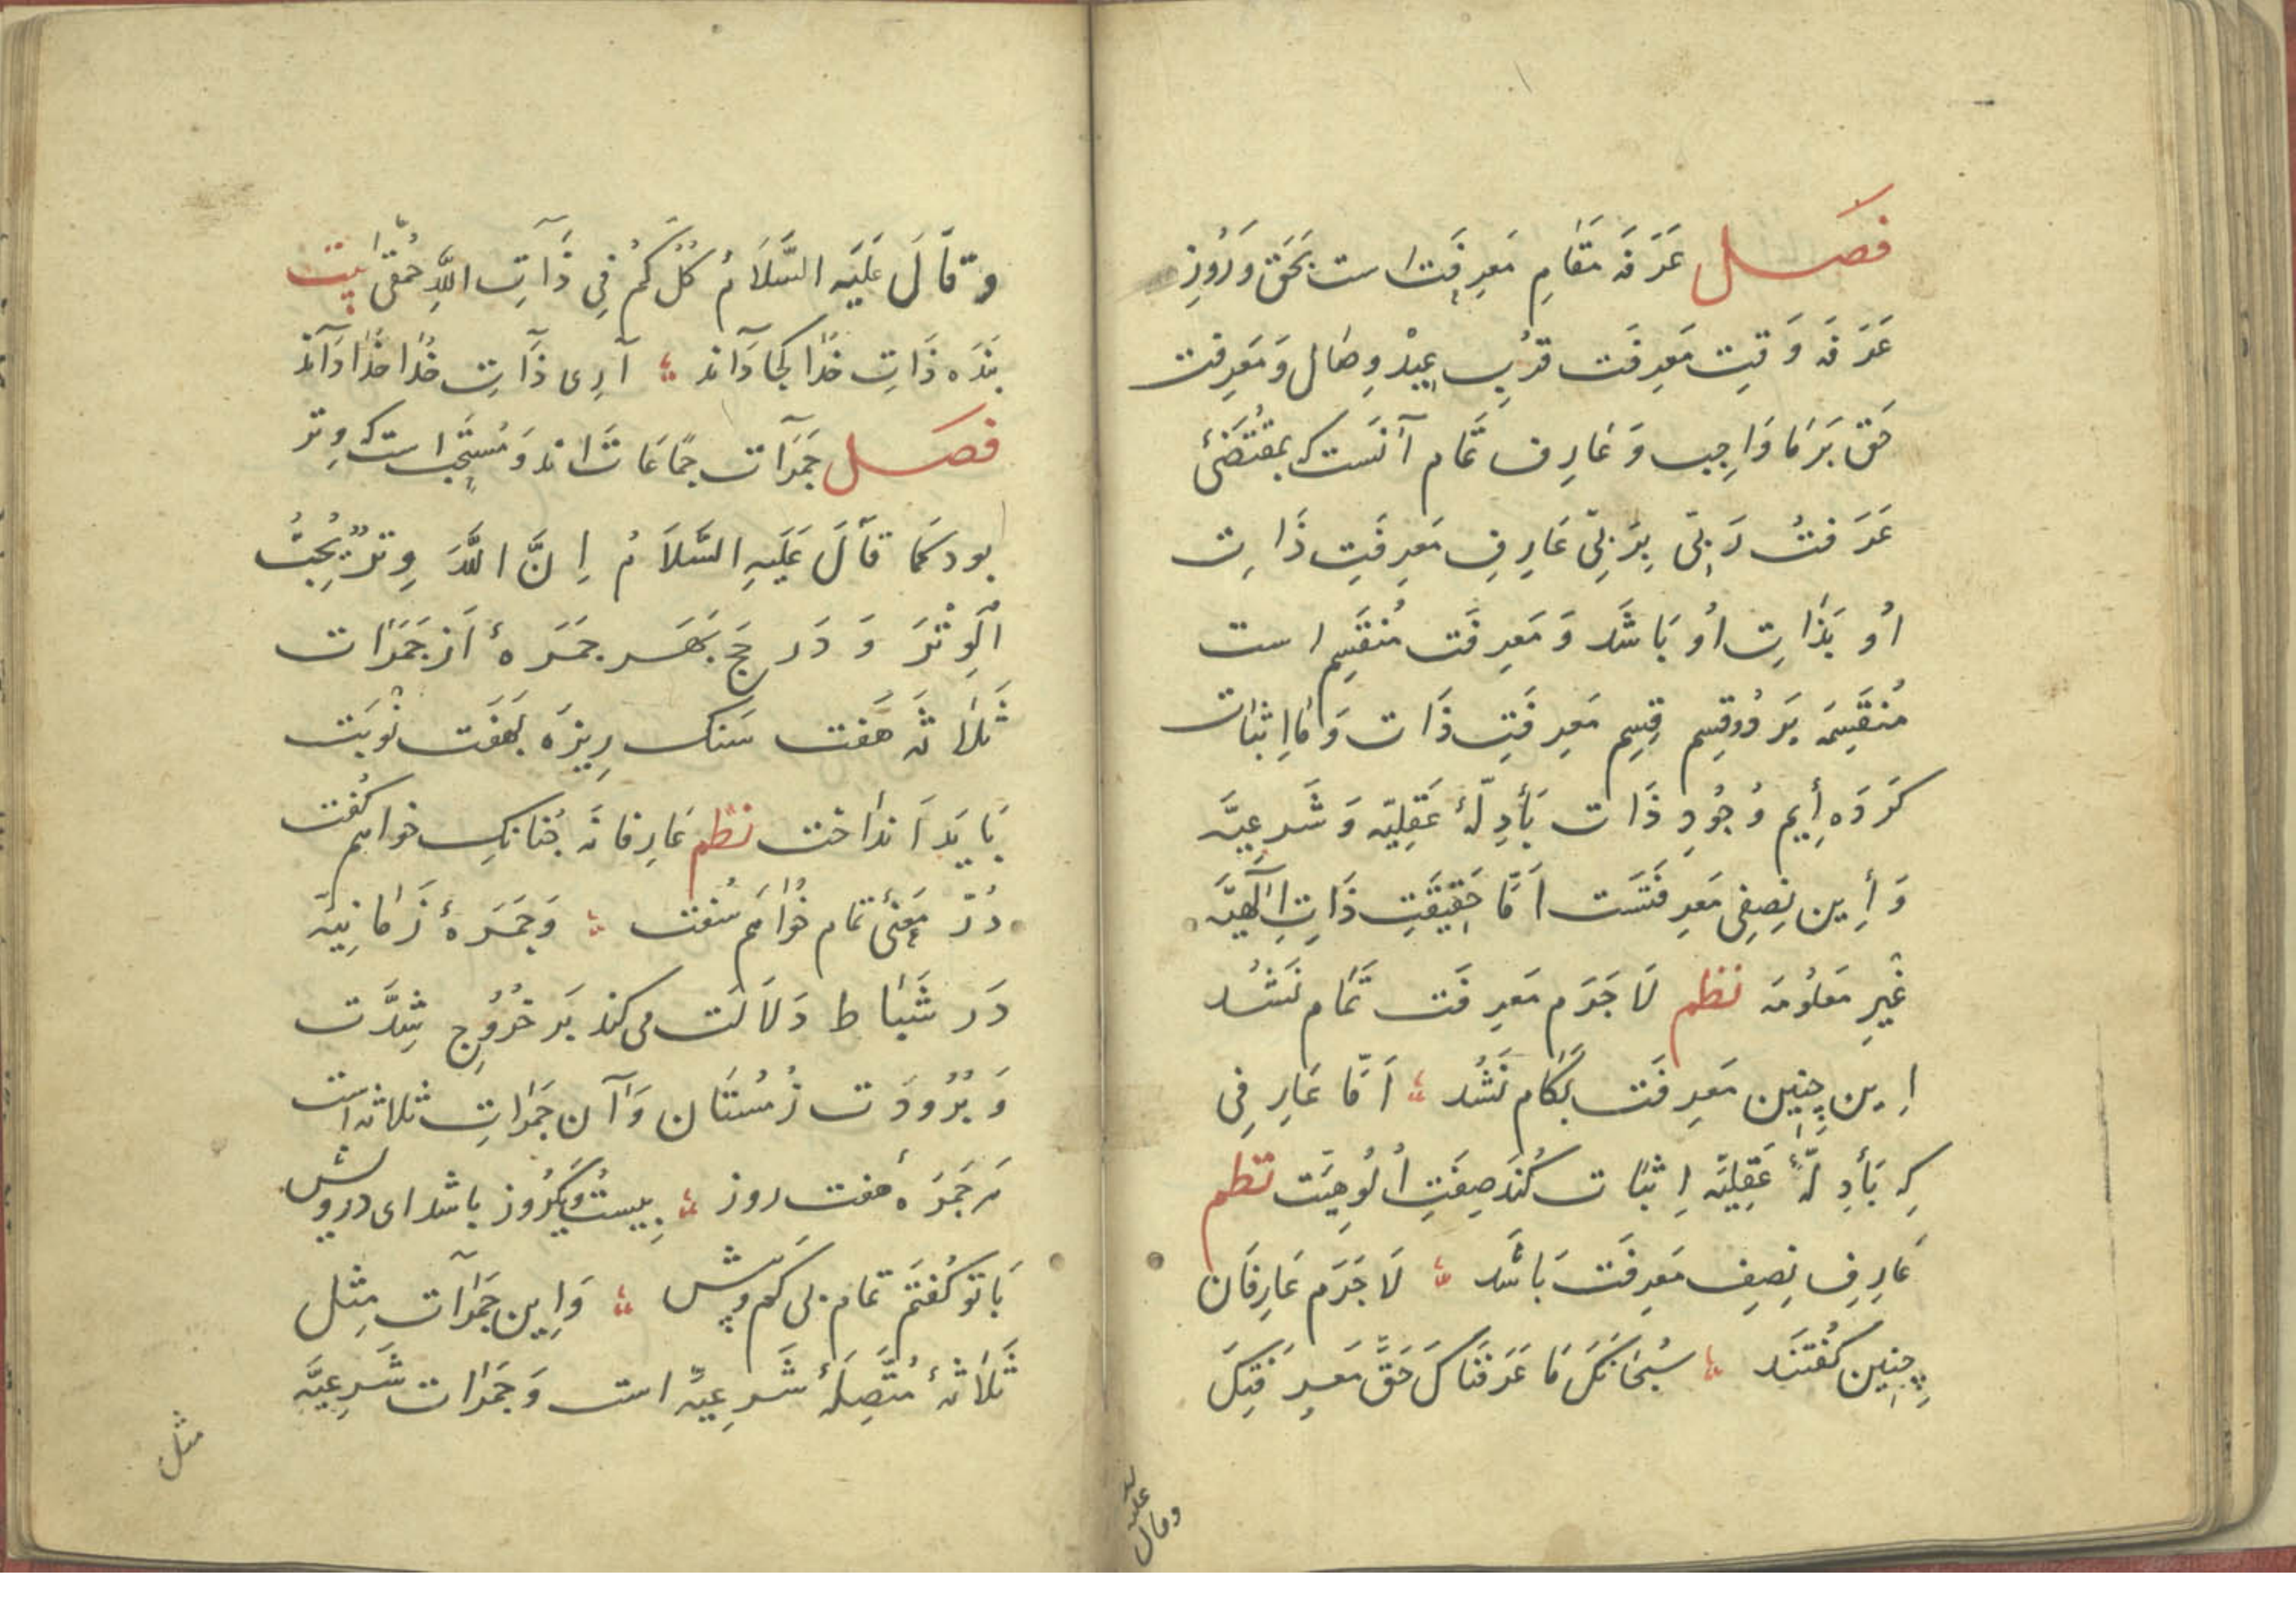 فَصَل عَرَفَه مَقَامِ مَعرِفَت است بَحَق وَ رُوزِ
عَرَفَه وَقتِ مَعرِفَت قربِ عِيدْ وِصَال وَ مَعرِفت
حَق بَر مَا وَاجِب وَ عَارِف تَمَام آنَست كه بمُقتَضَىٰ
عَرَفتُ رَبّى بِرَبّى عَارِفِ مَعرِفَتِ ذَاتِ
اُو بَذَاتِ اُو بَاشَد وَ مَعرِفَت مُنقَسِم است
مُنقَسِمَه بَر دُو قِسِم قِسِم مَعرِفَتِ ذَات وَ مَا اِثبَات
كَردَه أِيم وُجُودِ ذَات بَأَدِلَّهٔ عَقلِيَّه وَ شَرعِيَّه
وَ أِين نِصِفِ مَعرِفَتَست اَمَّا حَقِيقَتِ ذَاتِ اِلٰهِيَّه
غَيرِ مَعلُومَه نظم لَا جَرَم مَعرِفَت تَمَام نَشُد
اِين چِنِين مَعرِفَت بَكَام نَشُد ؛ اَمَّا عَارِفى
كِه بَأَدِلَّهٔ عَقلِيَّه اِثبَات كُنَد صِفَتِ اُلُوهِيَّت نظم
عَارِفِ نِصِفِ مَعرِفَت بَاشَد ؛ لَا جَرَم عَارِفَان
چِنِين كُفتَنَد ؛ سُبحَانَكَ مَا عَرَفنَاكَ حَقَّ مَعرِفَتِكَ
وقال عليه
وَقَالَ عَلَيهِ السَّلَامُ كُلُّكُم فِى ذَاتِ اللهِ حُمقَى بيت
بَندَه ذَاتِ خُدَا كجَا دَاند ؛ آرِى ذَاتِ خُدَا خُدَا دَاند
فَصَل جَمَرَات جَمَاعَات اند وَ مُستَحَب است كه وِتر
بود كَمَا قَالَ عَلَيهِ السَّلَامُ اِنَّ اللهَ وِترٌ يُحِبُّ
الوِتْرَ وَ دَر حَج بَهَر جمَرَهٔ اَز جَمَرَات
ثَلَاثَه هَفت سَنك رِيزَه بَهَفت نُوبَت
بَايَد اَندَاخت نظم عَارِفَانَه چُنَانكِ خواهم كُفت
دُرِّ مَعنىٰ تمام خُوَاهَم سُفت ؛ وَ جَمَرَهٔ زَمَانِيَّه
دَر شَبَاط دَلَالَت مى كند بَر خُرُوجِ شِدَّت
وَ بُرُودَت زُمُستَان وَ آن جَمَرَاتِ ثلاثه است
هَر جَمرَه هفت روز ؛ بِيست و يكرُوز باشد اى درويش
بَا تو كُفتَم تمام بى كم و بيش ؛ وَ اِين جَمَرَات مِثل
ثَلَاثهٔ مُتَّصِلَهٔ شَرعِيَّه است وَ جَمَرَات شَرعِيَّه
مثل